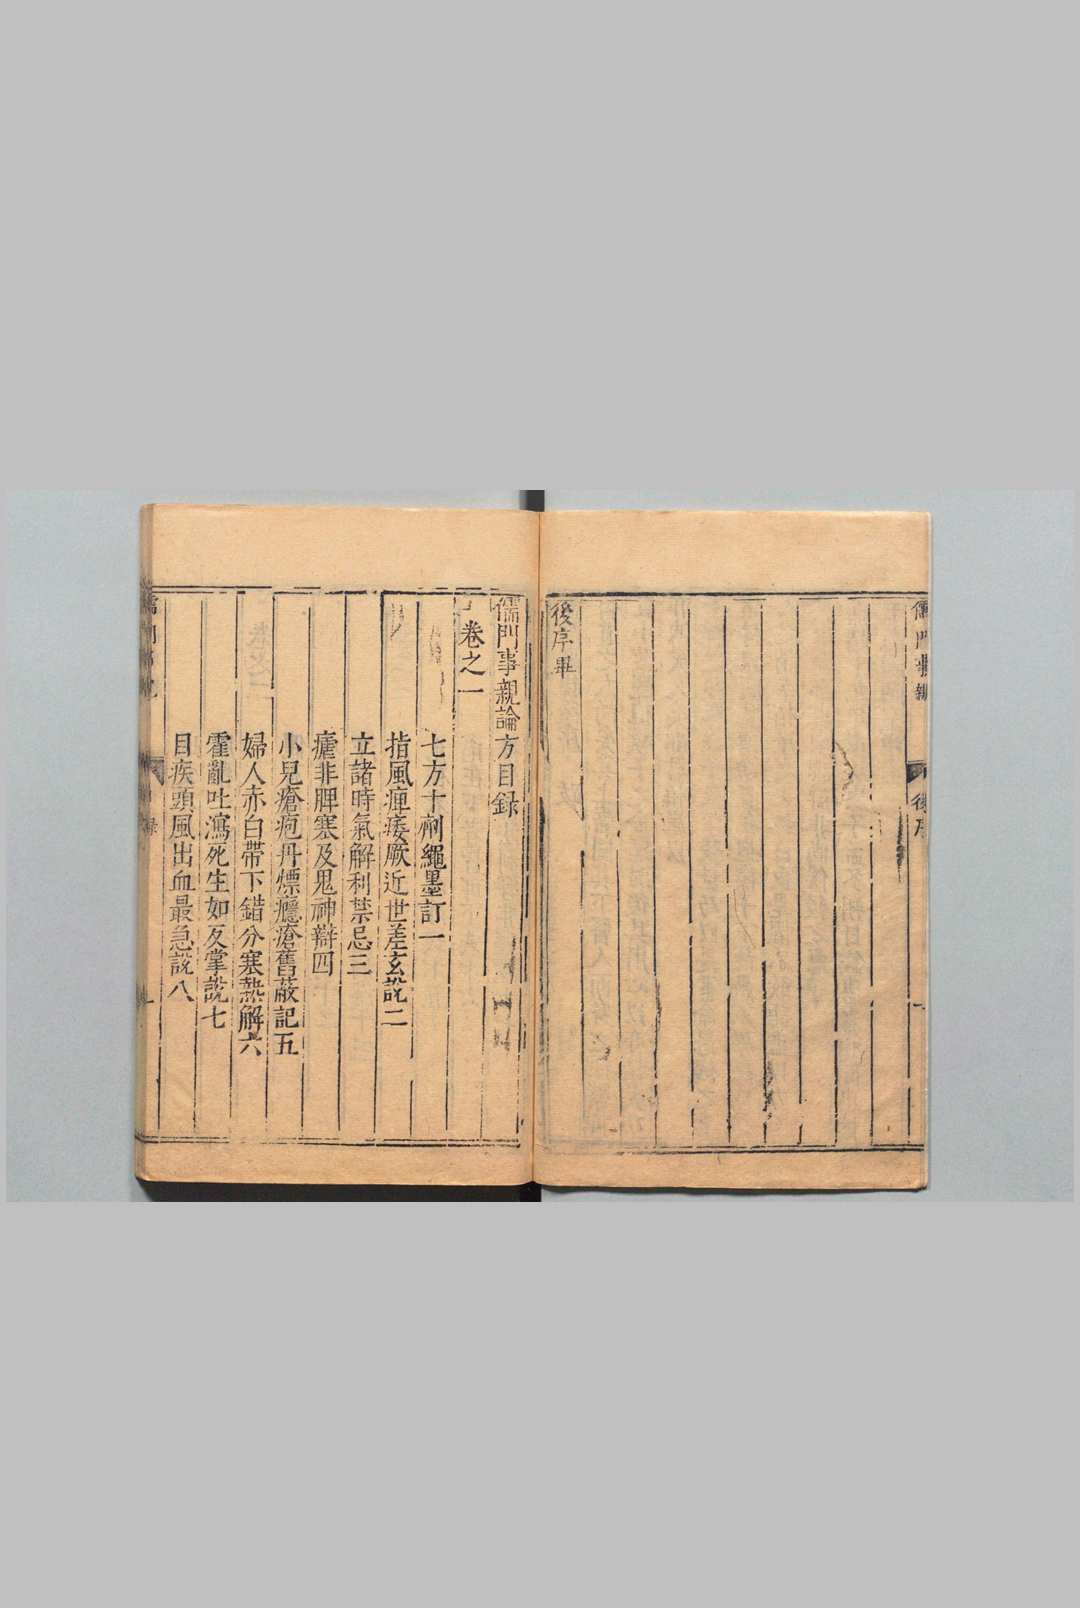 儒門事親
後序
一
後序畢
儒門事親論方目録
卷之一
七方十劑繩墨訂一
指風痺痿厥近世差玄說二
立諸時氣解利禁忌三
瘧非脾寒及鬼神辯四
小兒瘡疱丹熛癮疹舊蔽記五
婦人赤白帶下錯分寒熱解六
霍亂吐瀉死生如反掌說七
目疾頭風出血最急說八